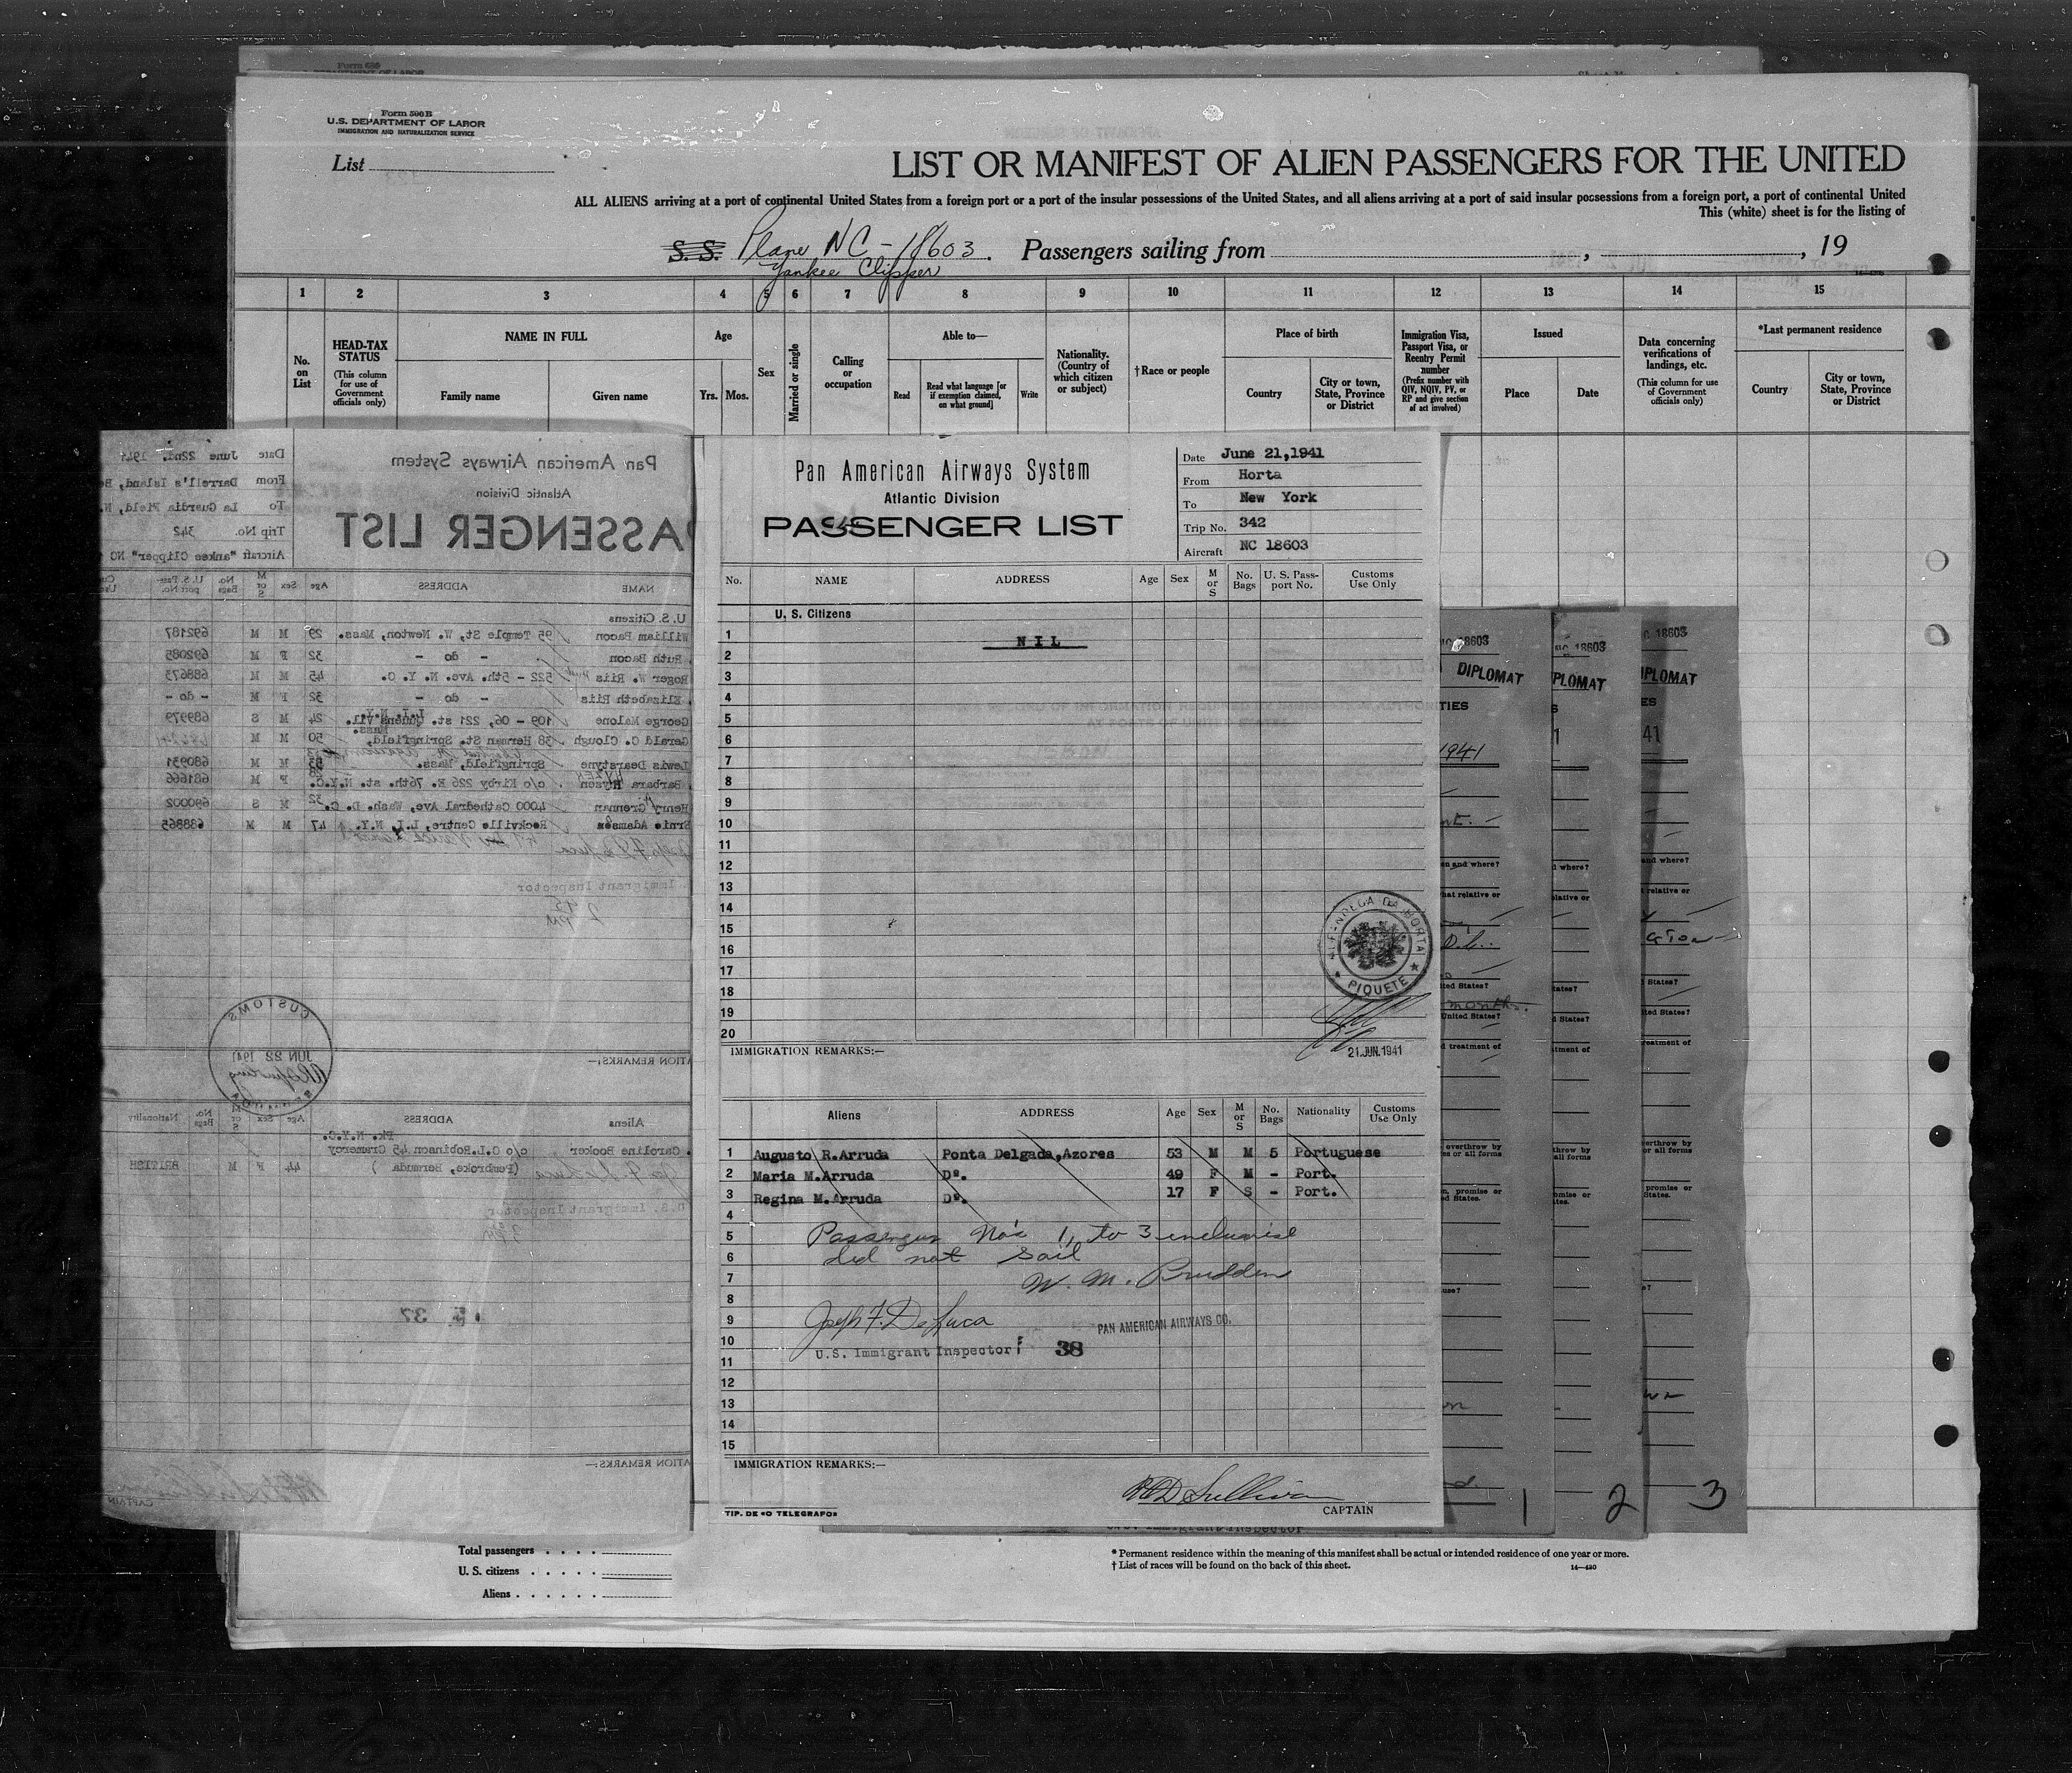 Form 500 B
U.S. DEPARTMENT OF LABOR
IMMIGRATION AND NATURALIZATION SERVICE
List
LIST OR MANIFEST OF ALIEN PASSENGERS FOR THE UNITED
ALL ALIENS arriving at a port of continental United States from a foreign port or a port of the insular possessions of the United States, and all aliens arriving at a port of said insular possessions from a foreign port, a port of continental United
This (white) sheet is for the listing of
S. S. Plane NC-18603. Passengers sailing from , , 19
Yankee Clipper
1 2 3 4 5 6 7 8 9 10 11 12 13 14 15
No. on List
HEAD-TAX STATUS (This column for use of Government officials only)
NAME IN FULL
Family name Given name
Age
Yrs. Mos.
Sex
Married or single
Calling or occupation
Able to—
Read Read what language [or if exemption claimed, on what ground] Write
Nationality. (Country of which citizen or subject)
†Race or people
Place of birth
Country City or town, State, Province or District
Immigration Visa, Passport Visa, or Reentry Permit number (Prefix number with QIV, NQIV, PV, or RP and give section of act involved)
Issued
Place Date
Data concerning verifications of landings, etc. (This column for use of Government officials only)
*Last permanent residence
Country City or town, State, Province or District
Pan American Airways System
Atlantic Division
PASSENGER LIST
Date June 22nd, 194
From Darrell's Island, Be
To La Guardia Field, N.
Trip No. 342
Aircraft "ankee Clipper" NC
NAME ADDRESS Age Sex M or S No. Bags U. S. Pass-port No.
U. S. Citizens
William Bacon 95 Temple St, W. Newton, Mass. 29 M M 692187
Ruth Bacon - do - 32 F M 692085
Roger W. Riis 522 - 5th. Ave. N. Y. C. 45 M M 688673
Elizabeth Riis - do - 32 F M - do -
George Malone 109 - 06, 221 st. Queens Vil. L.I. N.Y. 24 M S 689979
Gerald C. Clough 38 Herman St. Springfield, Mass. 50 M M
Lewis Dearstyne Springfield, Mass. 53 M M 680931
Barbara c/o Kirby 226 E. 76th. st. N.Y.C. 28 F M 681666
Henry Grennan 4000 Cathedral Ave, Wash. D. C. 32 M S 690002
Ernie Adamson Rockville Centre, L.I, N.Y. 47 M M 638865
Immigrant Inspector
CUSTOMS
JUN 22 1941
ATION REMARKS:—
Aliens ADDRESS Age Sex M or S No. Bags Nationality
Caroline Booker c/o C.L.Robinson 45 Gramercy Pk. N.Y.C.
(Pembroke, Bermuda ) 44 F M BRITISH
U.S. Immigrant Inspector
37
ATION REMARKS:—
CAPTAIN
Pan American Airways System
Atlantic Division
PASSENGER LIST
Date June 21,1941
From Horta
To New York
Trip No. 342
Aircraft NC 18603
No. NAME ADDRESS Age Sex M or S No. Bags U. S. Pass-port No. Customs Use Only
U. S. Citizens
1 NIL
2
3
4
5
6
7
8
9
10
11
12
13
14
15
16
17
18
19
20
ALFANDEGA DA HORTA
PIQUETE
21.JUN.1941
IMMIGRATION REMARKS:—
Aliens ADDRESS Age Sex M or S No. Bags Nationality Customs Use Only
1 Augusto R.Arruda Ponta Delgada,Azores 53 M M 5 Portuguese
2 Maria M.Arruda Dº. 49 F M - Port.
3 Regina M.Arruda Dº. 17 F S - Port.
4
5 Passengers No's 1, to 3 inclusive
6 did not sail
7 W. M. Prudden
8
9 Joseph F. DeLuca
PAN AMERICAN AIRWAYS CO.
10 U.S. Immigrant Inspector 38
11
12
13
14
15
IMMIGRATION REMARKS:—
CAPTAIN
TIP. DE «O TELEGRAFO»
18603
DIPLOMAT
1941
NC 18603
PLOMAT
C 18603
IPLOMAT
41
1 2 3
Total passengers
U. S. citizens
Aliens
* Permanent residence within the meaning of this manifest shall be actual or intended residence of one year or more.
† List of races will be found on the back of this sheet.
14—420